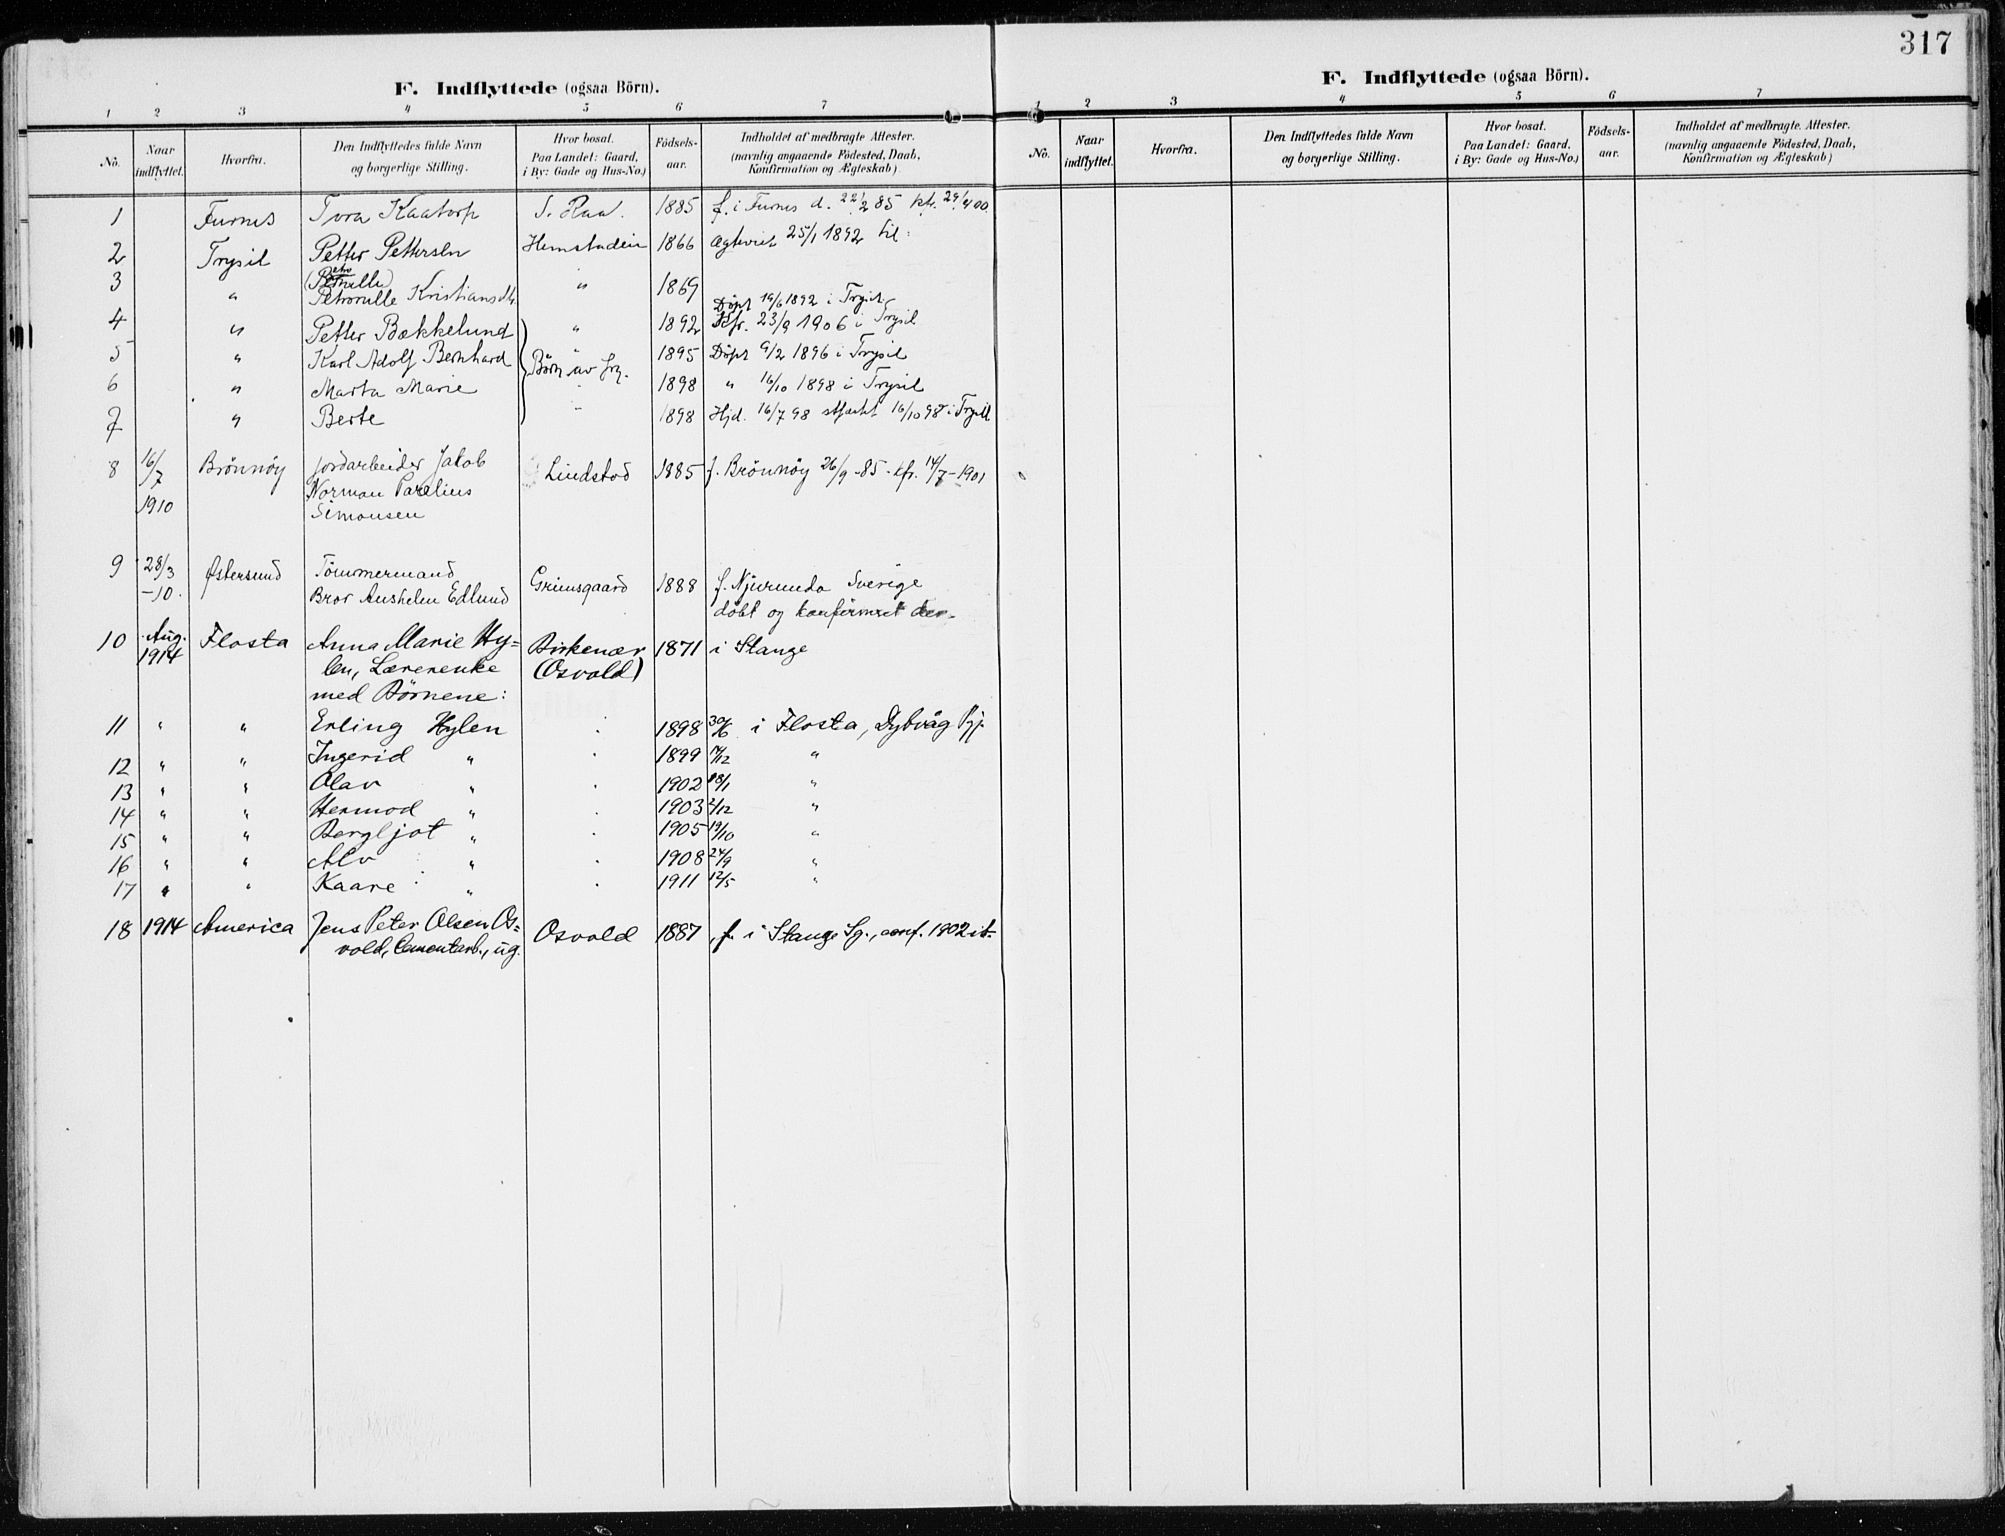 317
F. Indflyttede (ogsaa Börn).
1 2 3 4 5 6 7
No. Naar indflyttet. Hvorfra. Den Indflyttedes fulde Navn og borgerlige Stilling. Hvor bosat. Paa Landet: Gaard, i By: Gade og Hus-No.) Födsels-aar. Indholdet af medbragte Attester. (navnlig angaaende Födested, Daab, Konfirmation og Ægteskab)
1 Furnes Tora Kaatorp 1885 f. i Furnes d. 22/2 85 kfr.
2 Trysil Petter Pettersen Hemstadeie 1866 Ægteviet 25/1 1892 til:
3 " Petronille Kristiansdtr. " 1869
Døpt 19/6 1892 i Trysil
4 " Petter Bækkelund " 1892 Kfr. 23/9 1906 i Trysil
5 " Karl Adolf Bernhard " 1895 Døpt 9/2 1896 i Trysil
Børn av frg.
6 " Marta Marie 1898 " 16/10 1898 i Trysil
7 " Berte " 1898 Hjd. 16/7 98 stfæstet 16/10 98 i Trysil
8 16/7 Brönnöy Jordarbeider Jakob Lindstad 1885 f. Brönnöy 26/9 -85 - kfr. 14/7 - 1901
Norman Parelius
1910 Simonsen
9 28/3 Østersund Tömmermand Grimsgaard 1888 f. Njurunda Sverige
-10. Bror Anshelm Edlund döbt og konfirmeret der.
10 Aug. Flosta Anna Marie Hy- Birkenær 1871 i Stange
1914 len, Lærerenke (Osvold)
med Børnene:
11 " " Erling Hylen " 1898 30/6 i Flosta, Dybvåg Pgj.
12 " " Ingerid " " 1899 14/12 "
13 " " Olav " " 1902 18/1 "
14 " " Hermod " " 1903 2/12 "
15 " " Bergljot " " 1905 19/10 "
16 " " Alv " " 1908 24/9 "
17 " " Kaare " " 1911 12/5 "
18 1914 America Jens Peter Olsen Os- Osvold 1887, f. i Stange Sg., conf. 1902 ib.
vold, Cementarb., ug.
F. Indflyttede (ogsaa Börn).
1 2 3 4 5 6 7
No. Naar indflyttet. Hvorfra. Den Indflyttedes fulde Navn og borgerlige Stilling. Hvor bosat. Paa Landet: Gaard, i By: Gade og Hus-No.) Födsels-aar. Indholdet af medbragte Attester. (navnlig angaaende Födested, Daab, Konfirmation og Ægteskab)